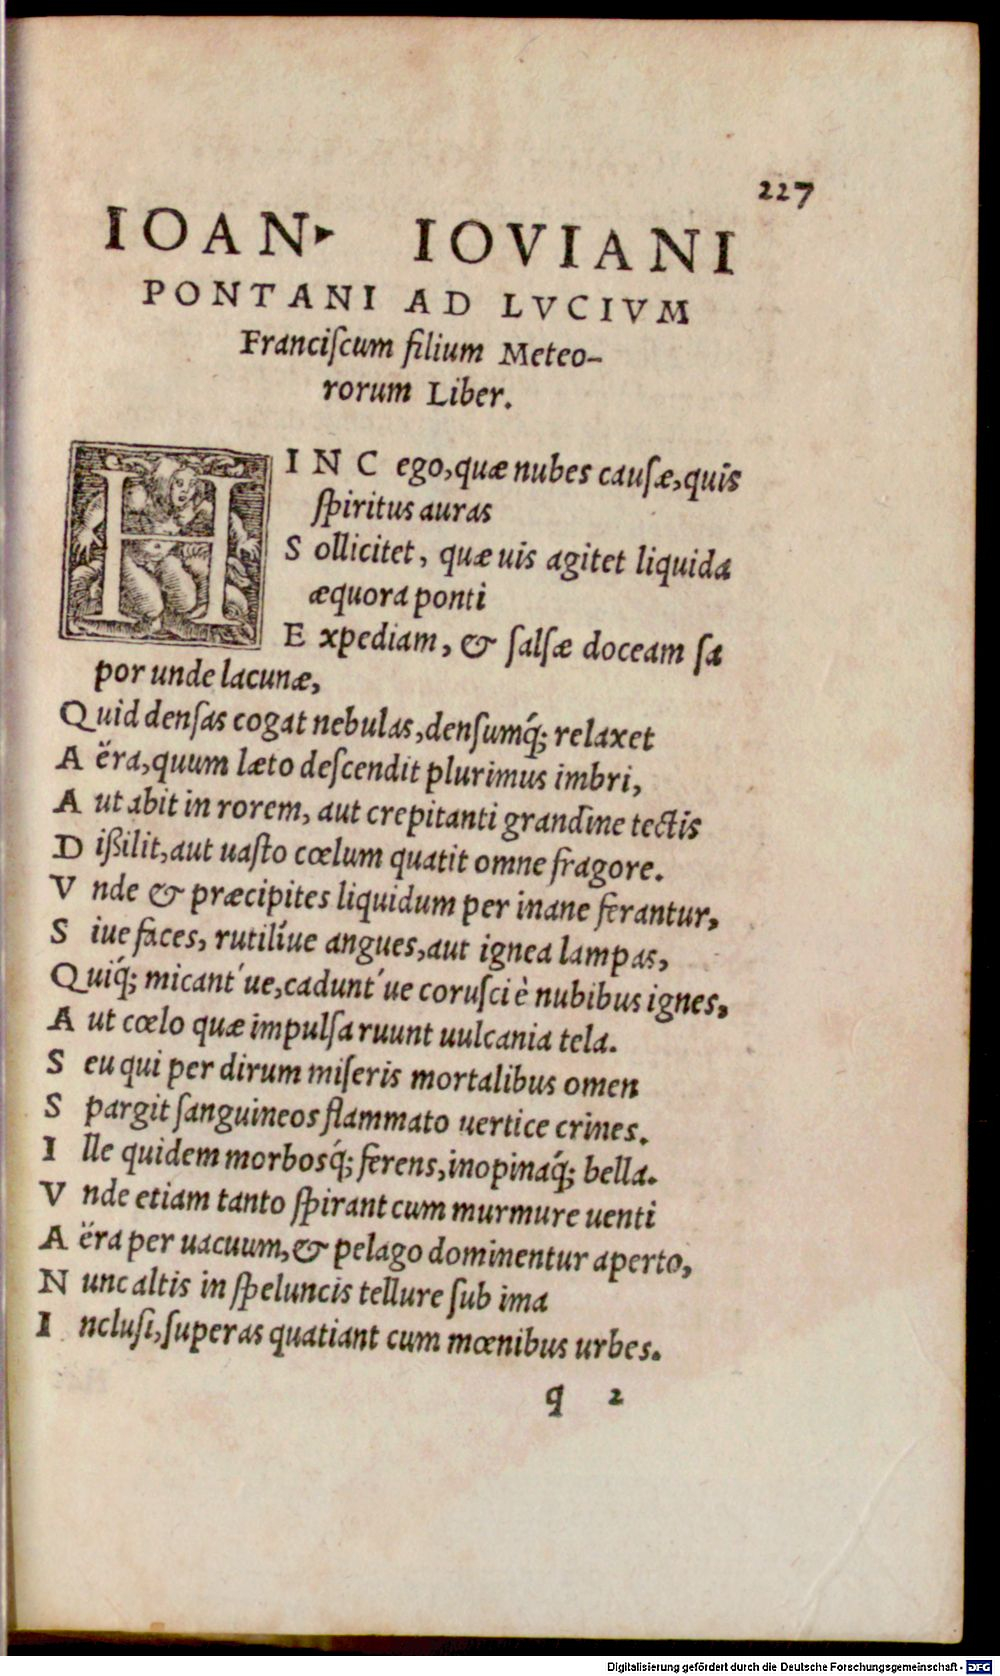 227
IOAN. IOVIANI
PONTANI AD LVCIVM
Franciſcum filium Meteo-
rorum Liber.
HINC ego, quæ nubes cauſæ, quis
ſpiritus auras
Sollicitet, quæ uis agitet liquida
æquora ponti
Expediam, & ſalſæ doceam ſa
por unde lacunæ,
Quid denſas cogat nebulas, denſumq́; relaxet
Aëra, quum læto deſcendit plurimus imbri,
Aut abit in rorem, aut crepitanti grandine tectis
Dißilit, aut uaſto cœlum quatit omne fragore.
Vnde & præcipites liquidum per inane ferantur,
Siue faces, rutilíue angues, aut ignea lampas,
Quiq́; micant´ue, cadunt´ue coruſci è nubibus ignes,
Aut cœlo quæ impulſa ruunt uulcania tela.
Seu qui per dirum miſeris mortalibus omen
Spargit ſanguineos flammato uertice crines.
Ille quidem morbosq́; ferens, inopinaq́; bella.
Vnde etiam tanto ſpirant cum murmure uenti
Aëra per uacuum, & pelago dominentur aperto,
Nunc altis in ſpeluncis tellure ſub ima
Incluſi, ſuperas quatiant cum mœnibus urbes.
q 2
Digitalisierung gefördert durch die Deutsche Forschungsgemeinschaft - DFG